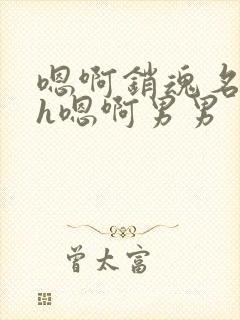 嗯啊銷魂名
h嗯啊男男
曾太富